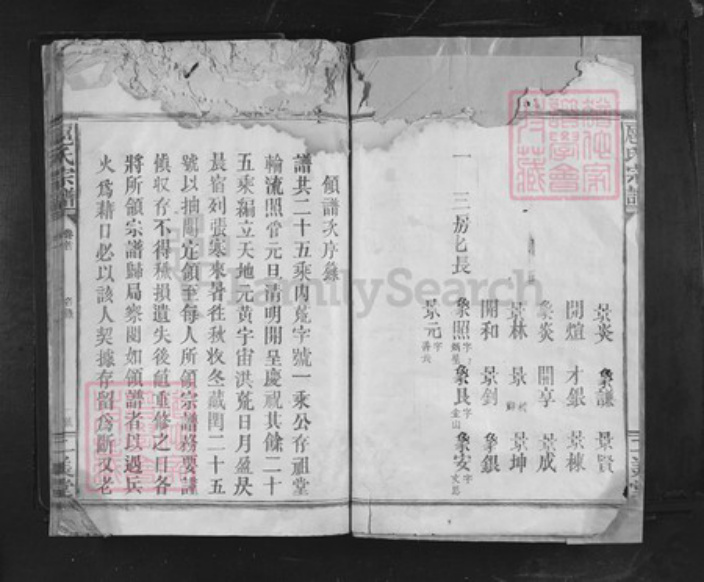 景炎 象謙 景賢
開煊 才銀 景棟
象炎 開享 景成
景林 景 景坤
開和 景釗 象銀
一 三房七長 象照字 象具字金山 象安字文思
景元字
領譜次序錄
譜共二十五乘內荒字號一乘公存祖堂
輪流照管元旦清明開呈慶祝其餘二十
五乘編立天地元黃宇宙洪荒日月盈昃
辰宿列張寒來暑往秋收冬藏閏二十五
號以拈鬮定領至每人所領宗譜務要謹
慎收存不得殘損遺失後值重修之日各
將所領宗譜歸局察閱如領譜者以遇兵
火為藉口必以該人契據存留為斷又老
氏宗譜
三義堂
FamilySearch